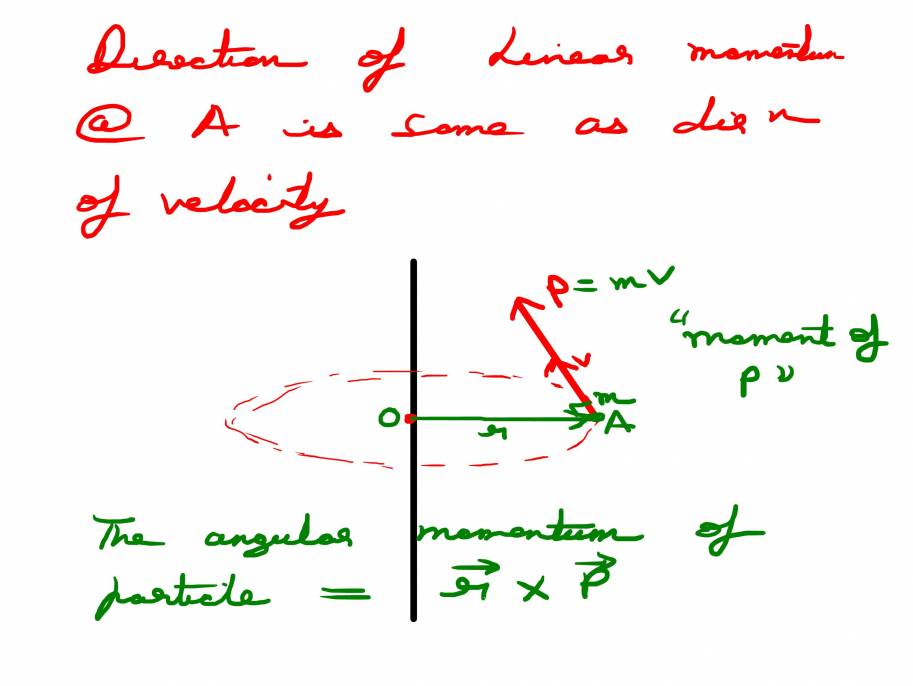 Direction of Linear momentum
@ A is same as dirn
of velocity
P = mv
"moment of
p"
v
m
O
r
A
The angular momentum of
particle = r⃗ × P⃗